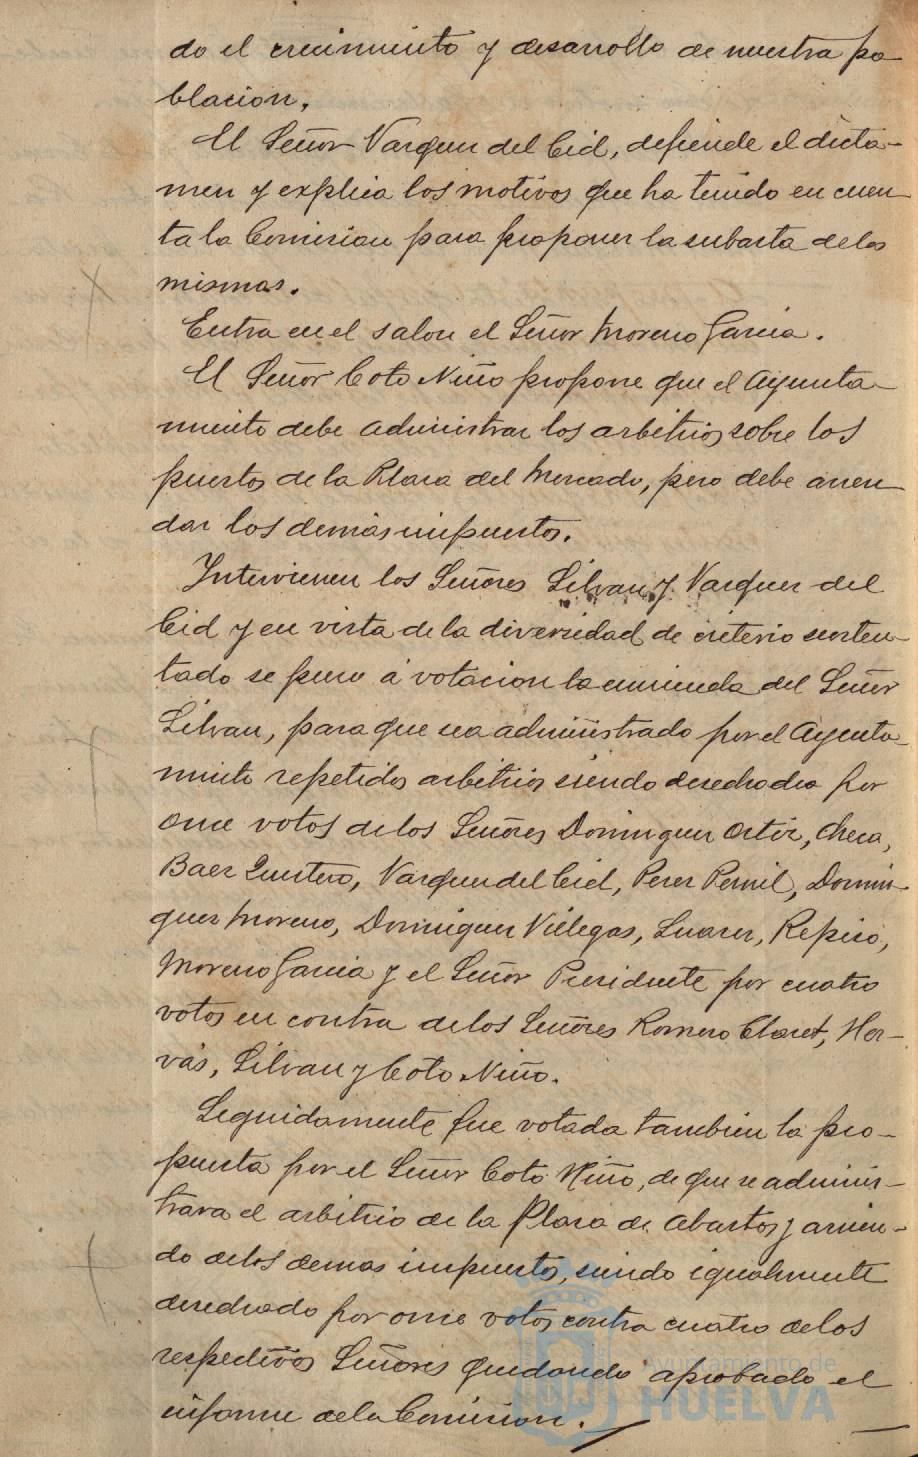 do el crecimiento y desarrollo de nuestra po-
blacion.
El Señor Vazquez del Cid, defiende el dicta-
men y explica los motivos que ha tenido en cuen
ta la Comision para proponer la subasta de los
mismos.
Entra en el salon el Señor Moreno Garcia.
El Señor Coto Niño propone que el Ayunta-
miento debe administrar los arbitrios sobre los
puestos de la Plaza del Mercado, pero debe arren
dar los demás impuestos.
Intervienen los Señores Silvan y Vazquez del
Cid y en vista de la diversidad de criterio susten-
tado se puso á votacion la enmienda del Señor
Silvan, para que sea administrado por el Ayunta-
miento repetidos arbitrios siendo desechada por
once votos de los Señores Dominguez Ortiz, Checa,
Baez Quintero, Vazquez del Cid, Perez Pernil, Domin-
guez Moreno, Dominguez Villegas, Suarez, Repiso,
Moreno Garcia y el Señor Presidente por cuatro
votos en contra de los Señores Romero Claret, Her-
vás, Silvan y Coto Niño.
Seguidamente fue votada tambien la pro-
puesta por el Señor Coto Niño, de que se adminis-
trara el arbitrio de la Plaza de Abastos y arrien-
do de los demas impuestos, siendo igualmente
desechado por once votos contra cuatro de los
respectivos Señores quedando aprobado el
informe de la Comision.
Ayuntamiento de
HUELVA